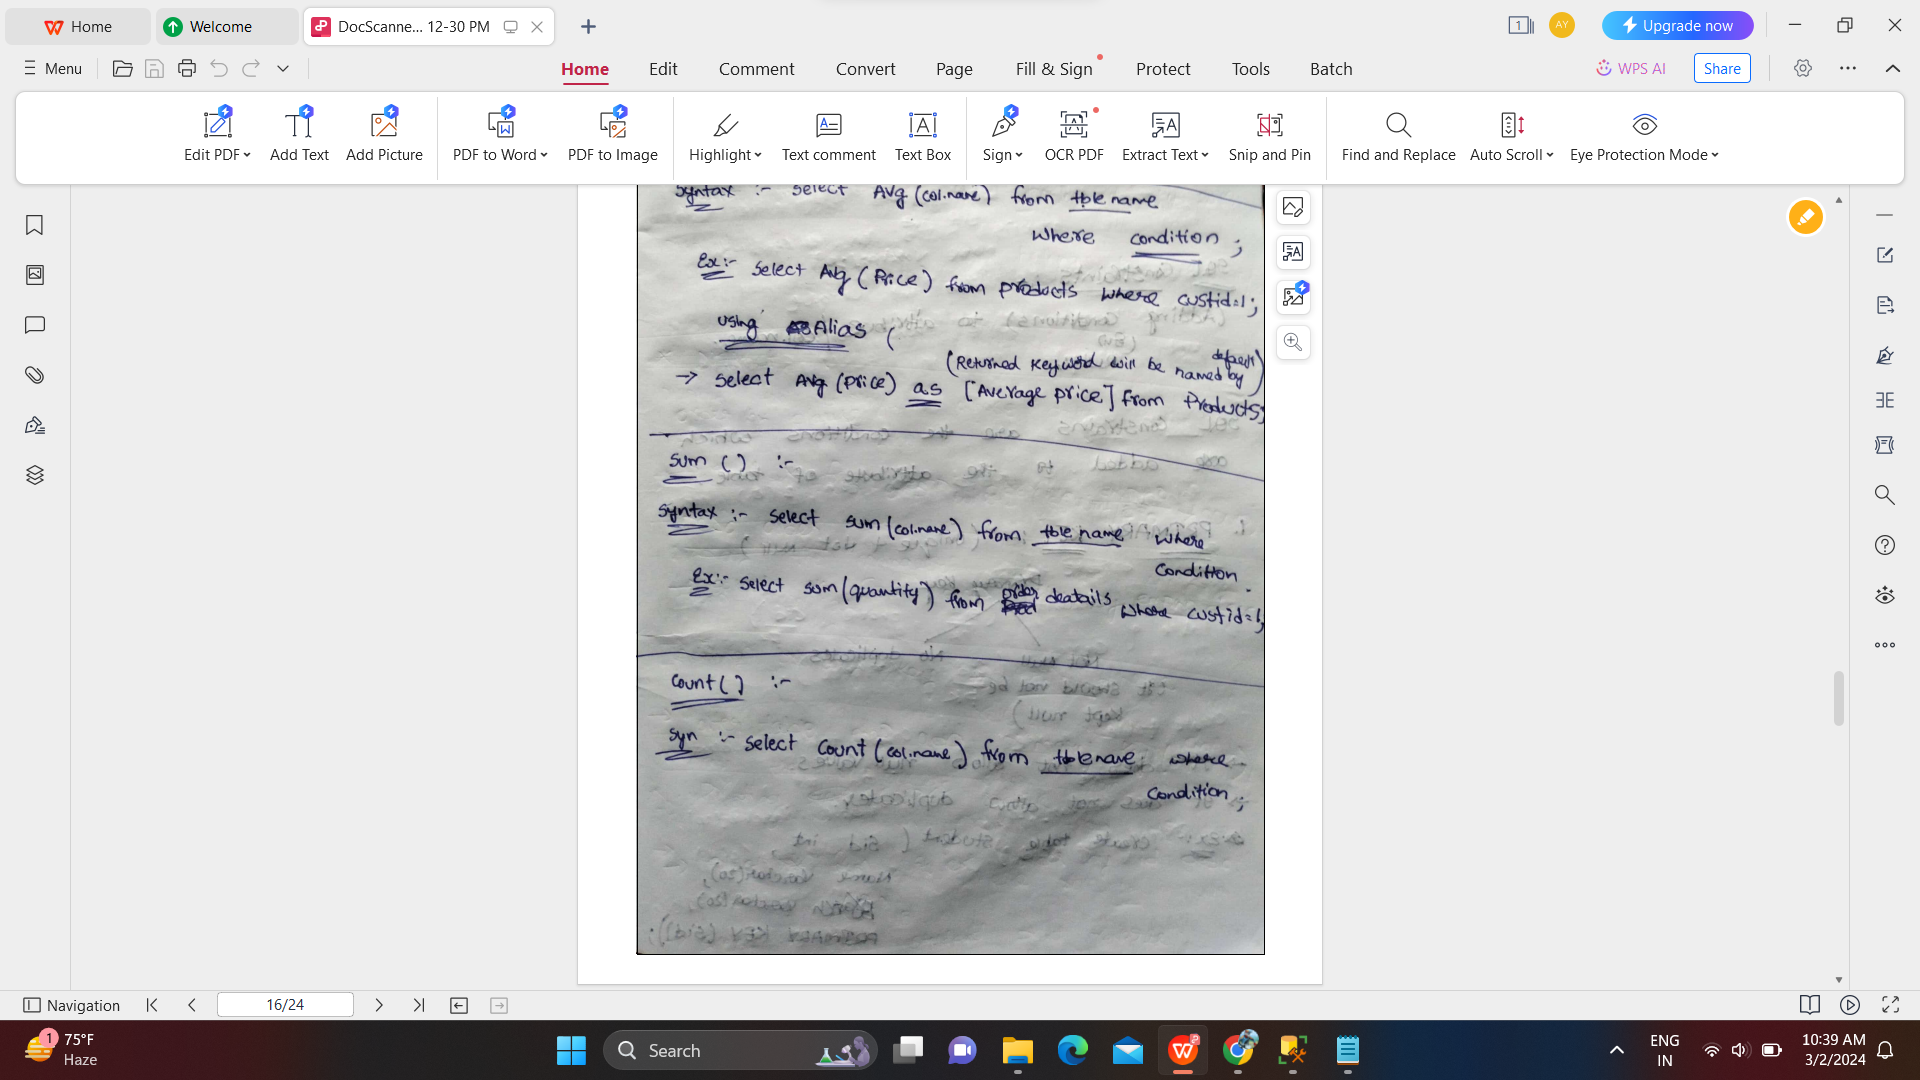 Home
Welcome
DocScanne... 12-30 PM
1
AY
Upgrade now
Menu
Home Edit Comment Convert Page Fill & Sign Protect Tools Batch
WPS AI
Share
Edit PDF Add Text Add Picture PDF to Word PDF to Image Highlight Text comment Text Box Sign OCR PDF Extract Text Snip and Pin Find and Replace Auto Scroll Eye Protection Mode
Syntax :- Select AVg (col.name) from tble name
Where condition ;
Ex:- Select Avg (Price) from products where custid=1;
using Alias (
(Returned Keyword will be named by default)
→ Select Avg (price) as [Average price] from Products;
Sum () :-
Syntax :- Select sum (col.name) from tble name where
Condition
Ex:- Select sum (quantity) from order deatails where custid=1;
Count () :-
Syn :- Select Count (col.name) from tble name where
Condition ;
Navigation
16/24
1
75°F
Haze
Search
ENG
IN
10:39 AM
3/2/2024